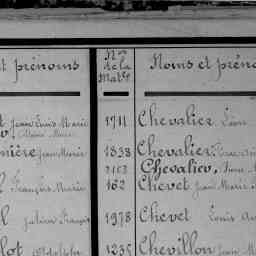 t prénoms Nos de la Matle Noms et préno
t Jean Louis Marie 1711 Chevalier Léon
nière Jean Marie 1838 Chevalier
2103 Chevalier,
François Marie 162 Chevet Jean Marie
l Julien François 1978 Chevet Louis
lot Adolphe 1235 Chevillon Jean M